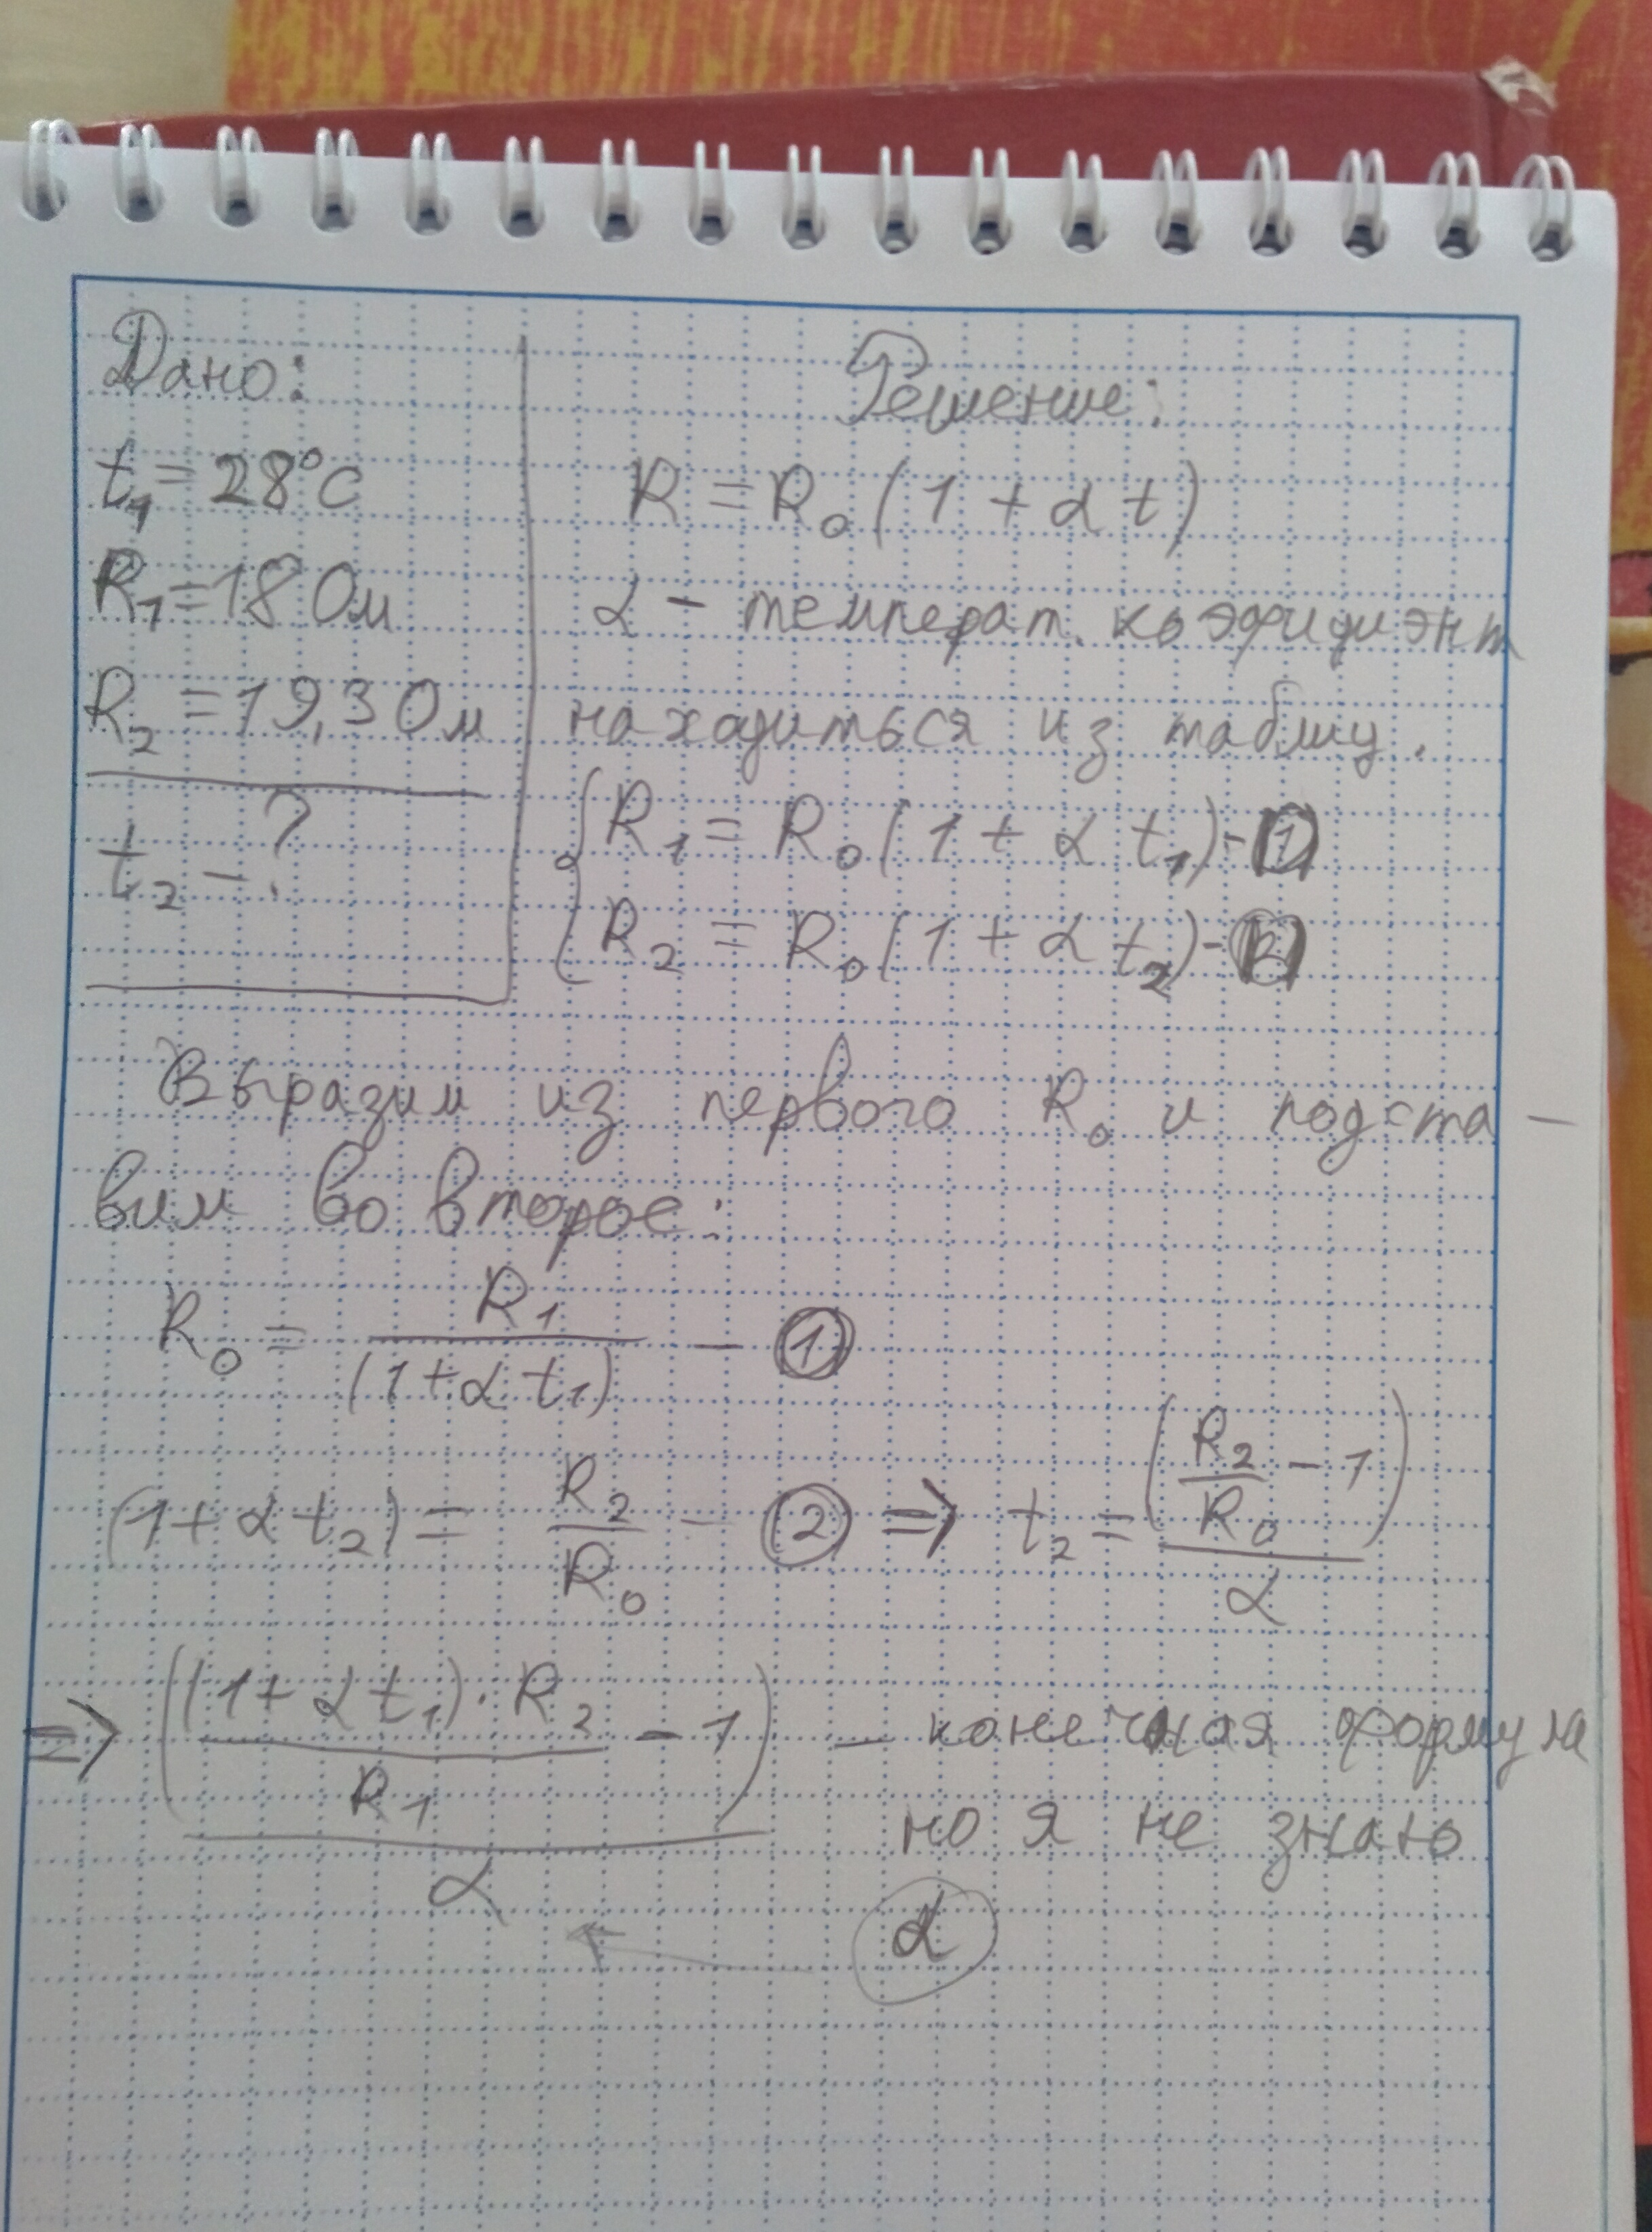 Дано:
t₁ = 28°C
R₁ = 18 Ом
R₂ = 19,3 Ом
t₂ - ?
Решение:
R = R₀ (1 + α t)
α - температ. коэфициэнт
находиться из таблиц.
{ R₁ = R₀ (1 + α t₁) - ①
{ R₂ = R₀ (1 + α t₂) - ②
Выразим из первого R₀ и подста -
вим во второе:
R₀ = R₁ / (1 + α t₁) - ①
(1 + α t₂) = R₂ / R₀ - ② => t₂ = (R₂ / R₀ - 1) / α
=> ((1 + α t₁) · R₂ / R₁ - 1) / α - конечная формула
но я не знаю
α